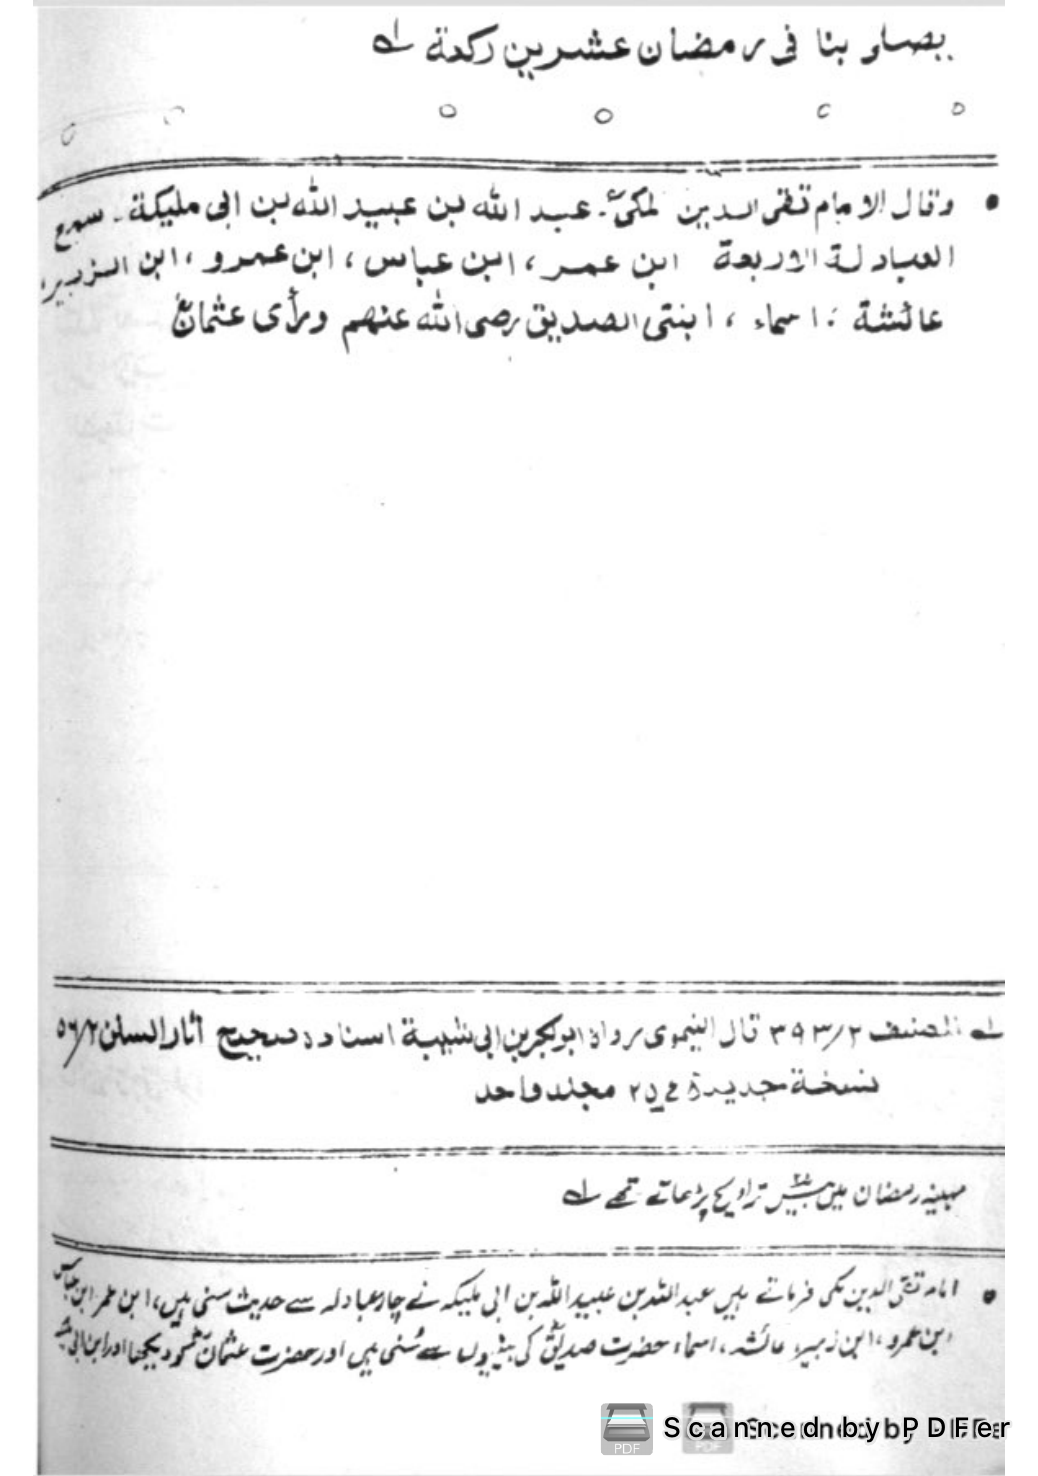 يصلى بنا فى رمضان عشرين ركعة لـه
• وقال الامام تقى الدين المكىؒ۔ عبد الله بن عبيد الله بن ابى مليكة۔ سمع
العبادلة الاربعة ابن عمر، ابن عباس، ابن عمرو، ابن الزبير،
عائشة، اسماء، ابنتى الصديق رضى الله عنهم ورأى عثمانؓ
لـه المصنف ٣٩٣/٢ قال النيموى رواه ابوبكر بن ابى شيبة اسناده صحيح آثار السنن ٥٦/٢
نسخة جديدة مجلد واحد
مہینہ رمضان میں بیس تراویح پڑھاتے تھے لـه
• امام تقی الدین مکی فرماتے ہیں عبداللہ بن عبیداللہ بن ابی ملیکہ نے چار عبادلہ سے حدیث سنی ہیں، ابن عمر ابن عباس
ابن عمرو، ابن زبیر، عائشہ، اسماء حضرت صدیقؓ کی بیٹیوں سے سُنی ہیں اور حضرت عثمانؓ کو دیکھا اور ابن ابی
Scanned by PDFer